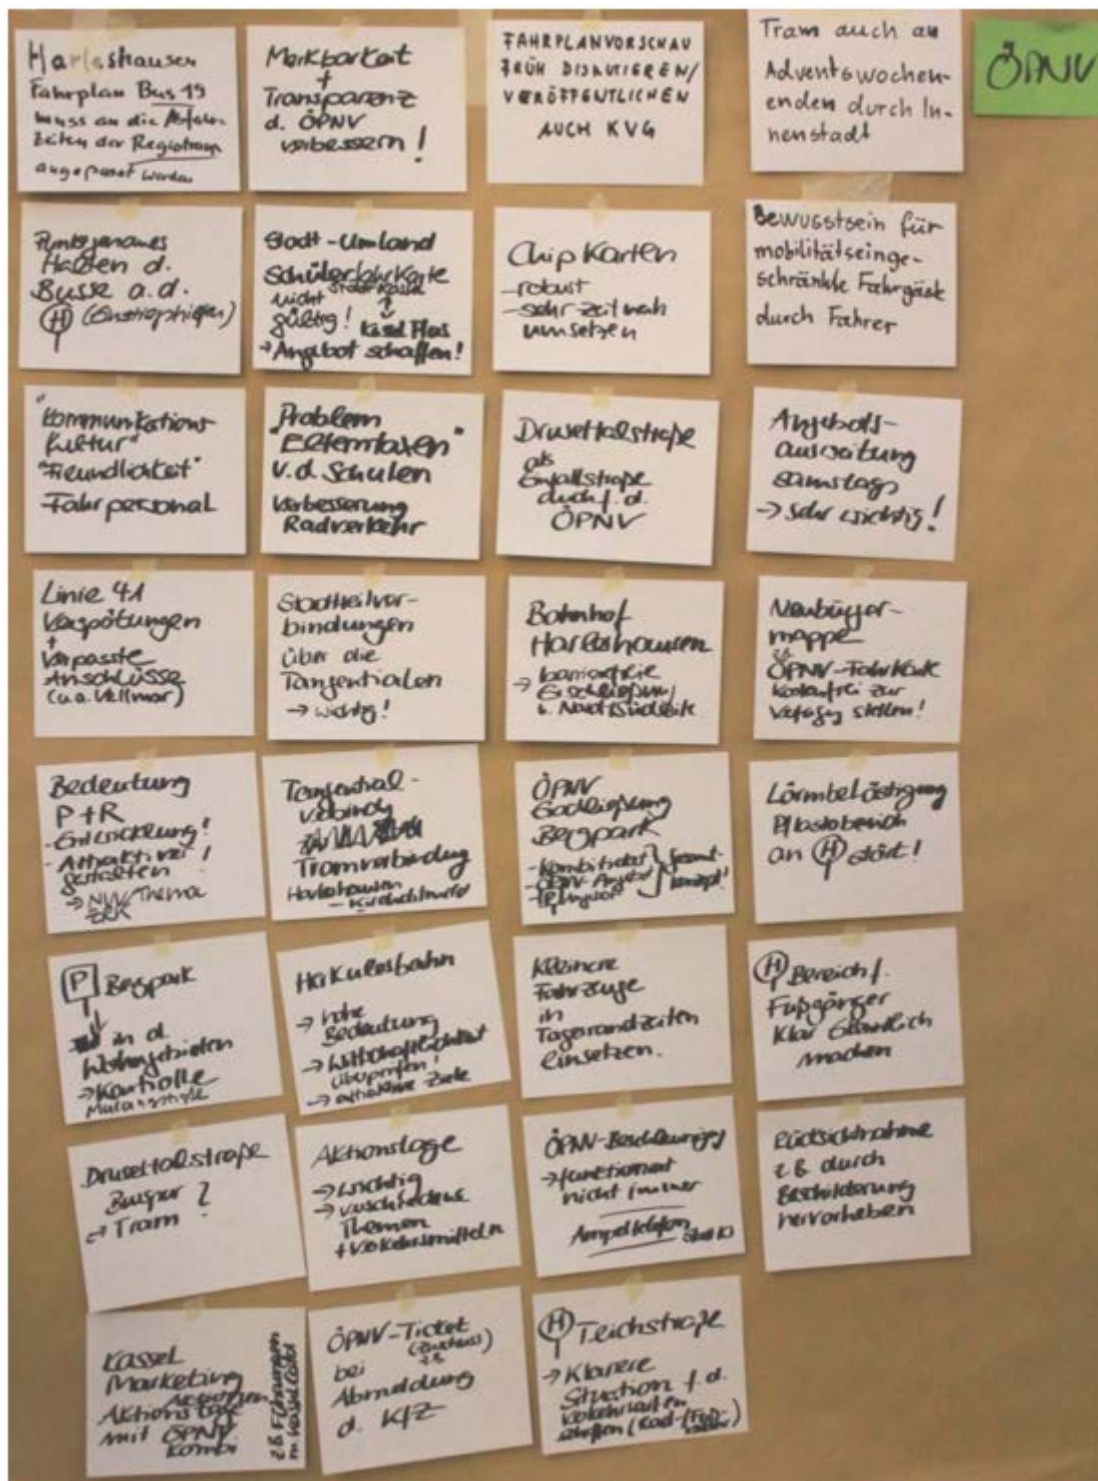 Harleshausen
Fahrplan Bus 19
muss an die Abfahr-
zeiten der Regiotram
angepasst werden
Merkbarkeit
+
Transparenz
d. ÖPNV
verbessern!
FAHRPLANVORSCHAU
FRÜH DISKUTIEREN/
VERÖFFENTLICHEN
AUCH KVG
Tram auch an
Adventswochen-
enden durch In-
nenstadt
ÖPNV
Punktgenaues
Halten d.
Busse a.d.
H (Einstiegshilfen)
Stadt-Umland
Schülerfahrkarte
nicht
gültig! Kassel Plus
→ Angebot schaffen!
Chipkarten
- robust
- sehr zeitnah
umsetzen
Bewusstsein für
mobilitätseinge-
schränkte Fahrgäste
durch Fahrer
"Kommunikations
kultur"
"Freundlichkeit"
Fahrpersonal
Problem
"Elterntaxen"
v.d. Schulen
Verbesserung
Radverkehr
Druseltalstraße
als
Einfallstraße
auch f. d.
ÖPNV
Angebots-
ausweitung
samstags
→ sehr wichtig!
Linie 41
Verspätungen
+
verpasste
Anschlüsse
(u.a. Vellmar)
Stadtteilver-
bindungen
über die
Tangentialen
→ wichtig!
Bahnhof
Harleshausen
→ barrierefreie
Erschließung
Neubürger-
mappe
ÖPNV-Fahrkarte
kostenfrei zur
Verfügg stellen!
Bedeutung
P+R
- Entwicklung!
- Attraktiver
gestalten!
→ NVV/Thema
ZRK
Tangential-
verbindg
Tramverbindung
Harleshausen
- Kirchditmold
ÖPNV
Erschließung
Bergpark
- Kombiticket
- ÖPNV-Angebot
Gesamt-
konzept!
Lärmbelästigung
Pflasterbereich
an H stört!
P Bergpark
in d.
Wohngebieten
→ Kontrolle
Herkulesbahn
→ hohe
Bedeutung
→ Wirtschaftlichkeit
überprüfen!
→ attraktive Ziele
Kleinere
Fahrzeuge
in
Tagesrandzeiten
einsetzen.
H Bereich f.
Fußgänger
klar erkenntlich
machen
Druseltalstraße
Busspur?
→ Tram
Aktionstage
→ wichtig
→ verschiedene
Themen
+ Verkehrsmitteln
ÖPNV-Beschleunigg
→ funktioniert
nicht immer
Ampeltelefon
Rücksichtnahme
z.B. durch
Beschilderung
hervorheben
Kassel
Marketing
Aktionstage
mit ÖPNV
Kombi
z.B. Führungen
ÖPNV-Ticket
(Zuschuss)
z.B.
bei
Abmeldung
d. KfZ
H Teichstraße
→ Klarere
Situation f. d.
Verkehrsarten
schaffen